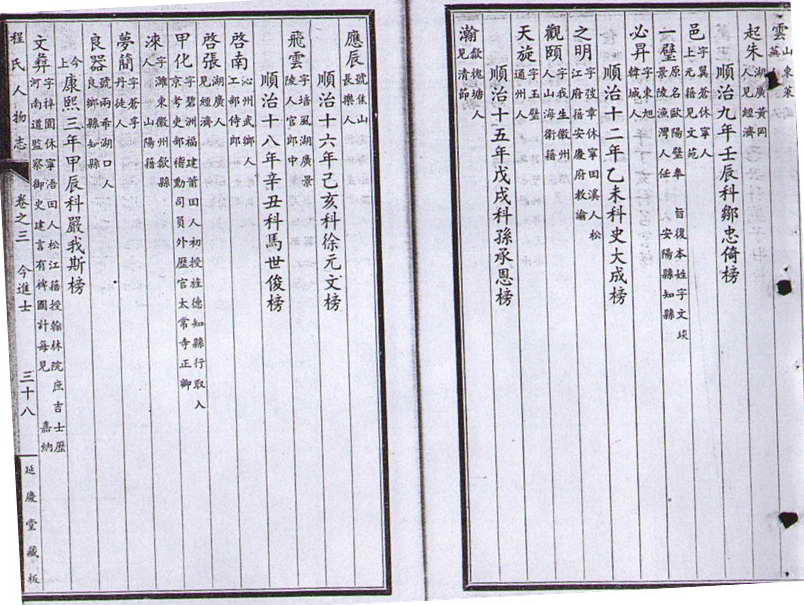 雲 山東萊
起朱 湖廣黃岡
人見經濟
順治九年壬辰科鄒忠倚榜
邑 字翼蒼休寧人
上元籍見文苑
一璧 原名歐陽璧奉 旨復本姓字文琰
景陵漁灣人任 安陽縣知縣
必昇 字東旭
韓城人
順治十二年乙未科史大成榜
之明 字弢章休寧田溪人松
江府籍安慶府教諭
觀頤 字我生徽州
人山海衛籍
天旋 字玉璧
通州人
順治十五年戊戌科孫承恩榜
瀚 歙槐塘人
見清節
應辰 號焦山
長樂人
順治十六年己亥科徐元文榜
飛雲 字培風湖廣景
陵人官郎中
順治十八年辛丑科馬世俊榜
啓南 沁州武鄉人
工部侍郎
啓張 湖廣人
見經濟
甲化 字碧洲福建莆田人初授旌德知縣行取入
京考吏部稽勳司員外歷官太常寺正卿
涑 字濉東徽州歙縣
人 山陽籍
夢簡 字蒼孚
丹徒人
良器 號兩希湖口人
良鄉縣知縣
今
上 康熙三年甲辰科嚴我斯榜
文彝 字梓園休寧浯田人松江籍授翰林院庶吉士歷
河南道監察御史建言有裨國計每見 嘉納
程氏人物志 卷之三 今進士 三十八 延慶堂藏板